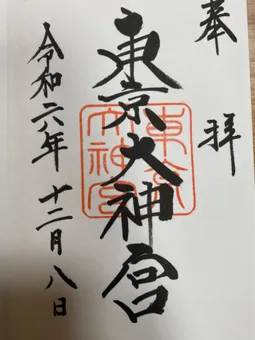 奉拝
東京大神宮
東京大神宮
令和六年十二月八日